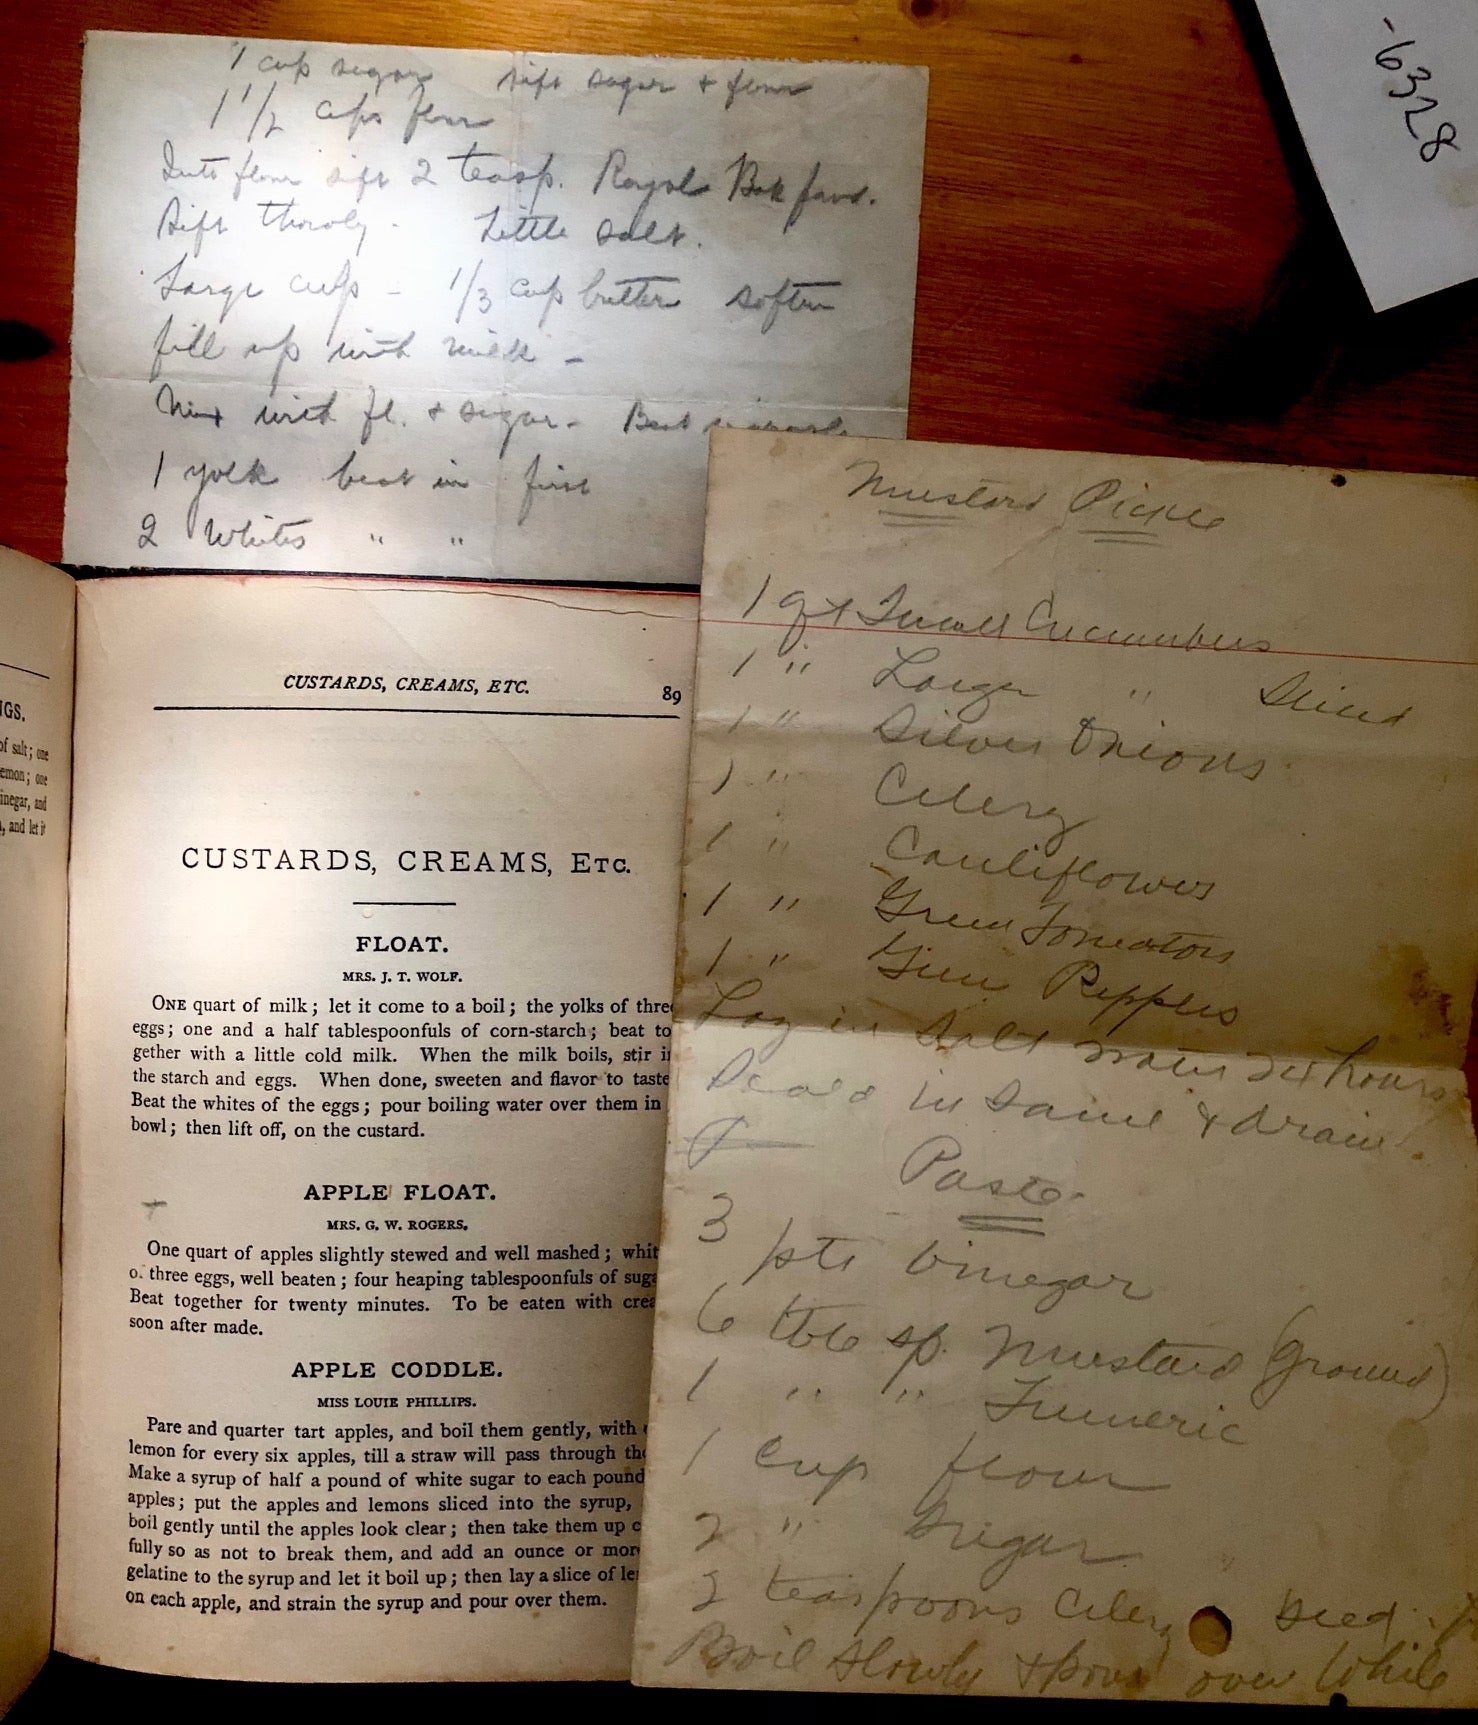 1 cup sugar sift sugar + flour
1 1/2 cups flour
Into flour sift 2 teasp. Royal Bak
Sift throly - Little salt.
Large cup - 1/3 cup butter soften
fill up with milk -
Mix with fl. + sugar - Beat
1 yolk beat in first
2 Whites " "
-6328
Mustard Pickle
1 qt Small Cucumbers
1 " Large " Sliced
1 " Silver Onions
1 " Celery
1 " Cauliflower
1 " Green Tomatoes
1 " Green Peppers
Lay in Salt water 24 hours
Scald in Same & drain.
Paste
3 pts Vinegar
6 tble sp. Mustard (ground)
1 " " Tumeric
1 cup flour
2 " Sugar
2 teaspoons Celery Seed
Boil Slowly & pour over While
NGS.
of salt; one
emon; one
inegar, and
, and let it
CUSTARDS, CREAMS, ETC. 89
CUSTARDS, CREAMS, ETC.
FLOAT.
MRS. J. T. WOLF.
ONE quart of milk; let it come to a boil; the yolks of three
eggs; one and a half tablespoonfuls of corn-starch; beat to
gether with a little cold milk. When the milk boils, stir in
the starch and eggs. When done, sweeten and flavor to taste
Beat the whites of the eggs; pour boiling water over them in
bowl; then lift off, on the custard.
APPLE FLOAT.
MRS. G. W. ROGERS.
One quart of apples slightly stewed and well mashed; whit
of three eggs, well beaten; four heaping tablespoonfuls of suga
Beat together for twenty minutes. To be eaten with crea
soon after made.
APPLE CODDLE.
MISS LOUIE PHILLIPS.
Pare and quarter tart apples, and boil them gently, with
lemon for every six apples, till a straw will pass through the
Make a syrup of half a pound of white sugar to each pound
apples; put the apples and lemons sliced into the syrup,
boil gently until the apples look clear; then take them up c
fully so as not to break them, and add an ounce or more
gelatine to the syrup and let it boil up; then lay a slice of le
on each apple, and strain the syrup and pour over them.